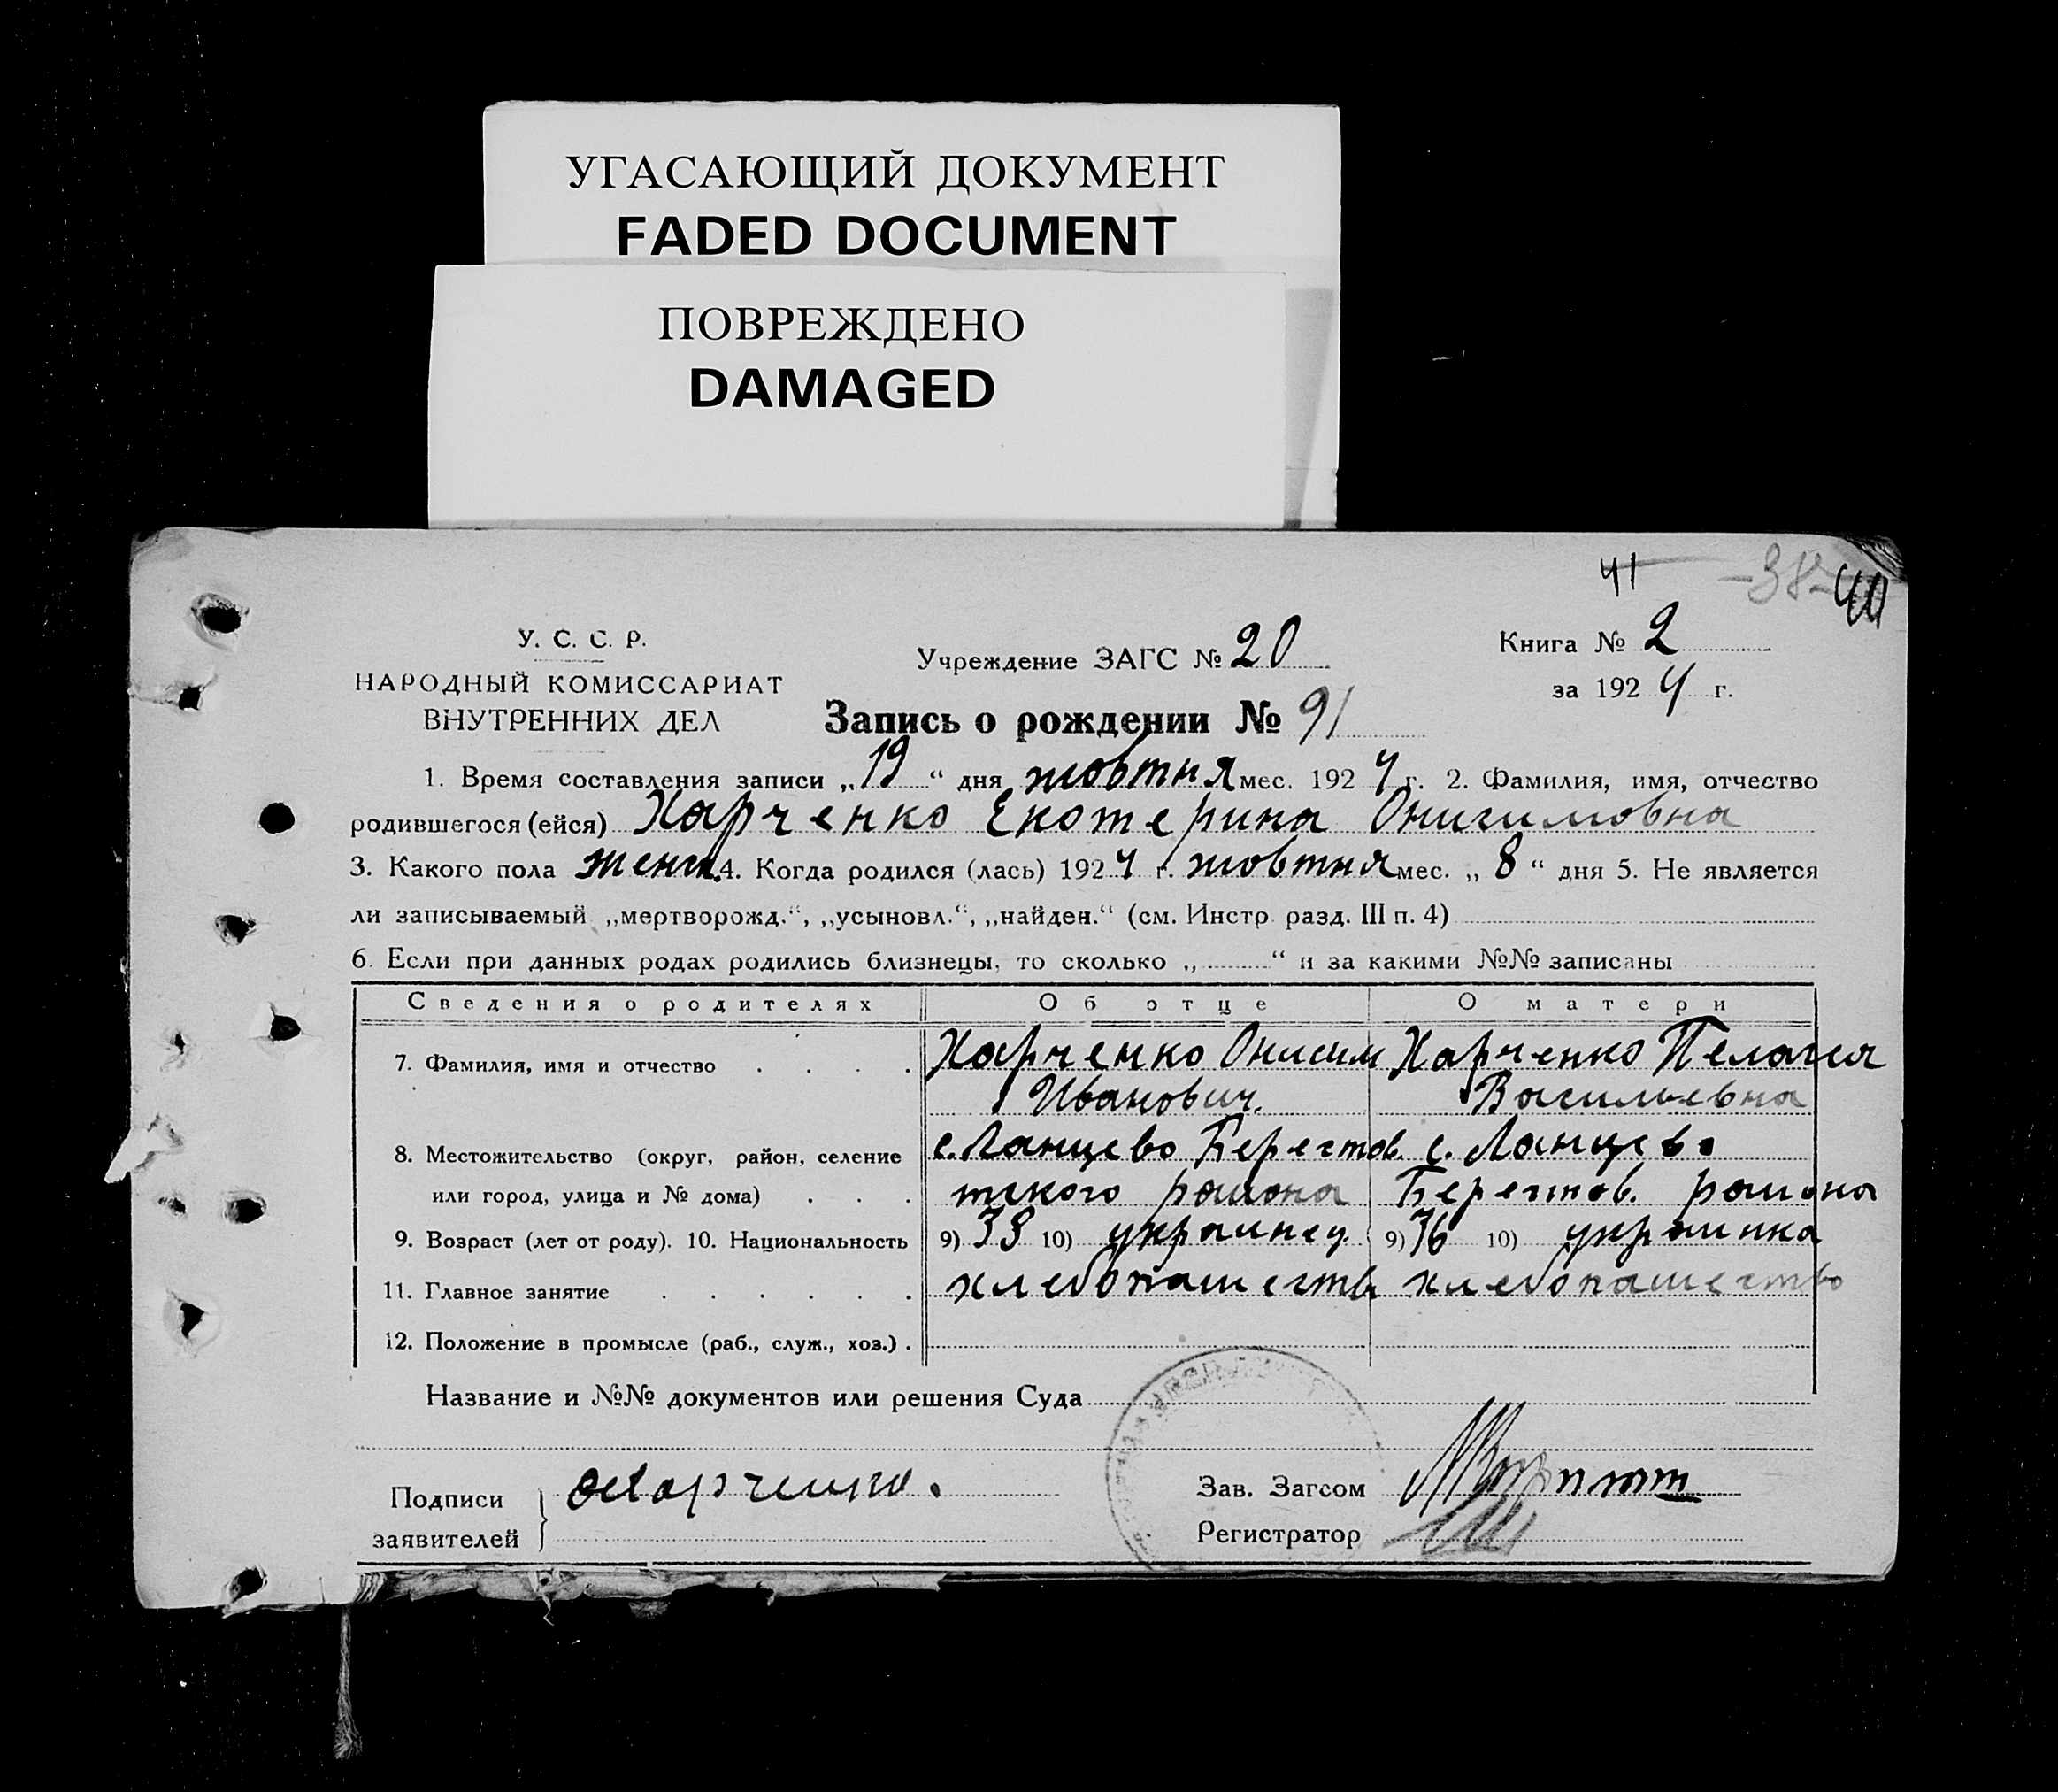 УГАСАЮЩИЙ ДОКУМЕНТ
FADED DOCUMENT
ПОВРЕЖДЕНО
DAMAGED
41 -38- 40
У. С. С. Р.
НАРОДНЫЙ КОМИССАРИАТ
ВНУТРЕННИХ ДЕЛ
Учреждение ЗАГС № 20
Книга № 2
за 1924 г.
Запись о рождении № 91
1. Время составления записи „19“ дня жовтня мес. 1924 г. 2. Фамилия, имя, отчество
родившегося (ейся) Харченко Екатерина Онисимовна
3. Какого пола женск. 4. Когда родился (лась) 1924 г. жовтня мес. „8“ дня 5. Не является
ли записываемый „мертворожд.“, „усыновл.“, „найден.“ (см. Инстр. разд. III п. 4)
6. Если при данных родах родились близнецы, то сколько „ “ и за какими №№ записаны
Сведения о родителях Об отце О матери
7. Фамилия, имя и отчество Харченко Онисим Харченко Пелагея
Иванович. Васильевна
8. Местожительство (округ, район, селение с. Ланцево Берестов. с. Ланцево
или город, улица и № дома) тского района Берестов. района
9. Возраст (лет от роду). 10. Национальность 9) 38 10) украинец 9) 36 10) украинка
11. Главное занятие хлебопашество хлебопашество
12. Положение в промысле (раб., служ., хоз.)
Название и №№ документов или решения Суда
Подписи Харченко.
заявителей
Зав. Загсом
Регистратор